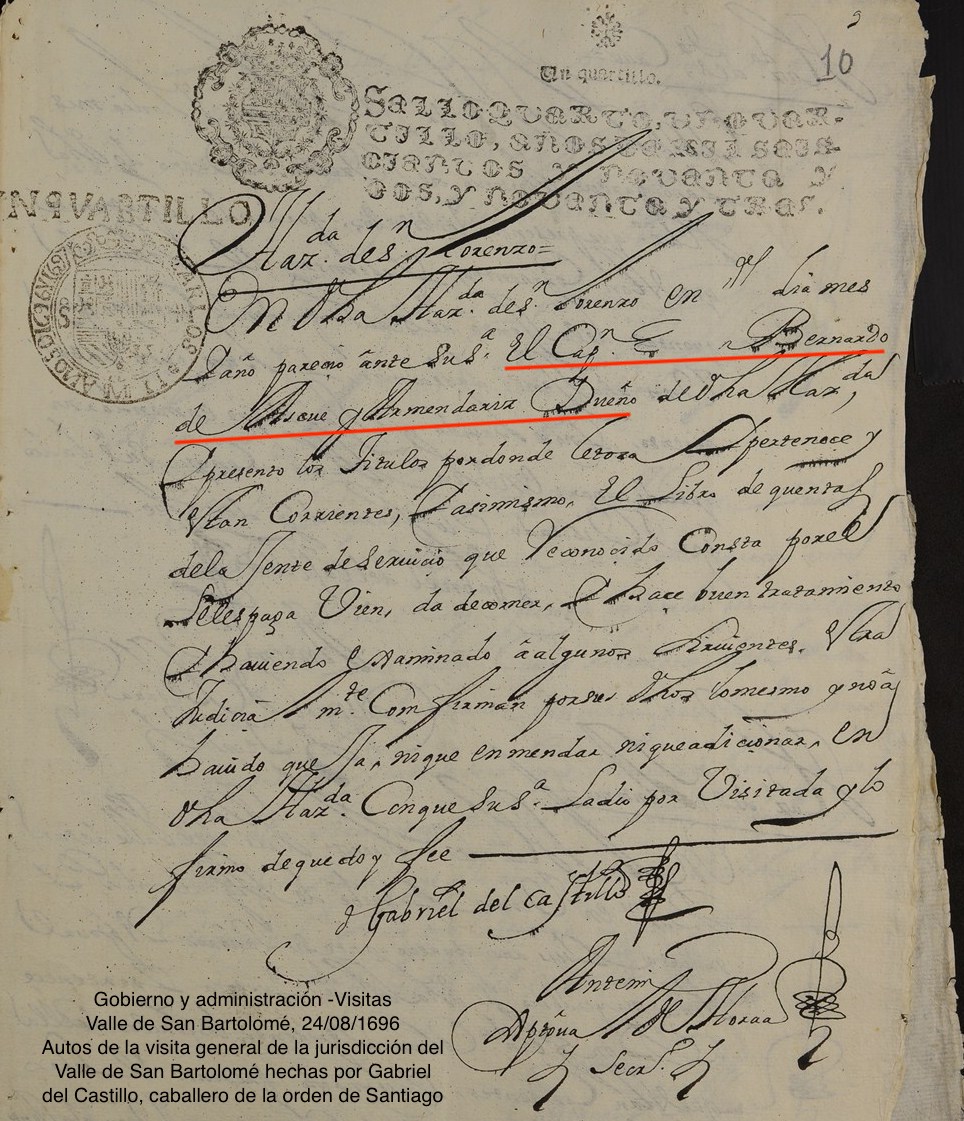 5
10
Un quartillo.
SELLO QVARTO, VN QVAR-
TILLO, AÑOS DE MIL SEIS-
CIENTOS Y NOVENTA Y
DOS, Y NOVENTA Y TRES.
VN QVARTILLO
Haz.da de S.n Lorenzo=
En dha Haz.da de S.n Lorenzo en dia mes
año parecio ante Su S.a El Cap.n Bernardo
de Asque y Armendariz Dueño de dha Haz.da,
presento los Titulos por donde le toca y pertenece y
estan Corrientes, Y asimismo, El Libro de quentas
de la Jente de servicio que reconocido Consta por el
Seles paga Vien, da de comer, E hace buen tratamiento
E haviendo examinado â algunos Sirvientes, extra
Judicial m.te Confirman por sus dhos lo mesmo y no â
havido queja, ni que enmendar ni que adicionar, en
dha Haz.da Con que Su S.a La dio por Visitada y lo
firmo de que doy fee
Gabriel del Castillo
Ante mi
de
Secr.o
Gobierno y administración -Visitas
Valle de San Bartolomé, 24/08/1696
Autos de la visita general de la jurisdicción del
Valle de San Bartolomé hechas por Gabriel
del Castillo, caballero de la orden de Santiago